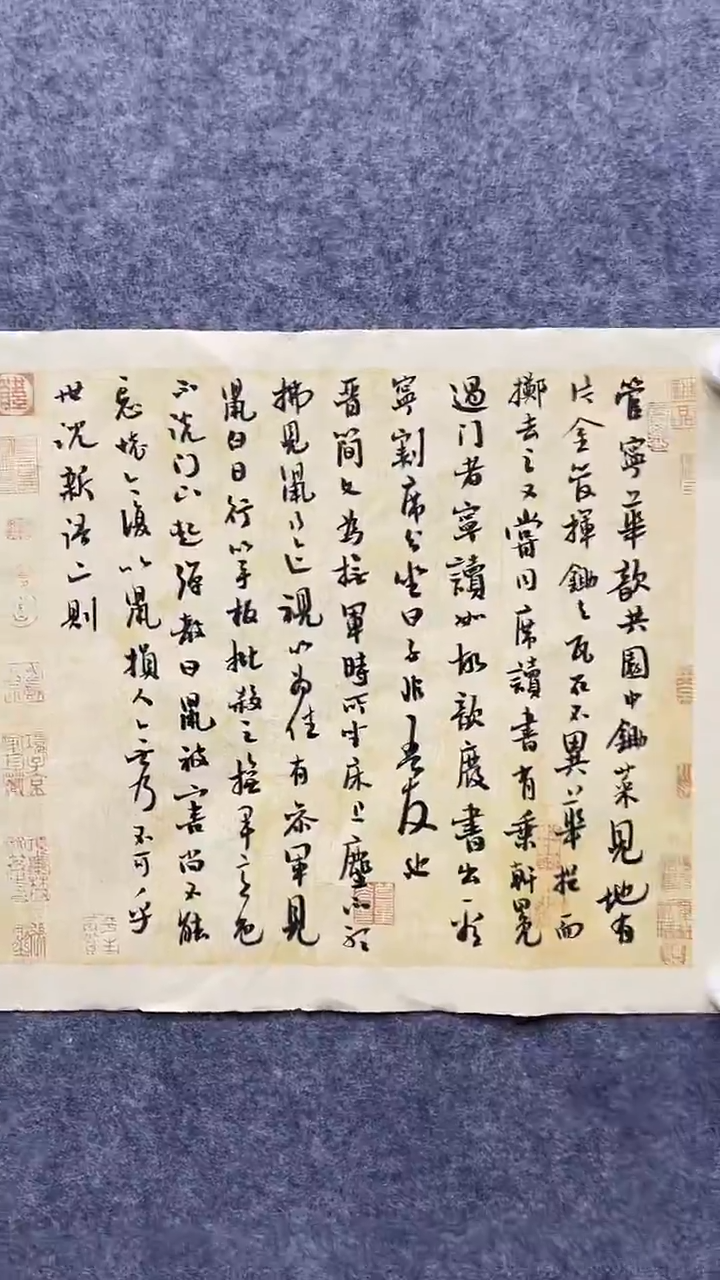 管寧華歆共園中鋤菜見地有
片金管揮鋤与瓦石不異華捉而
擲去之又嘗同席讀書有乗軒冕
過門者寧讀如故歆廢書出看
寧割席分坐曰子非吾友也
晉簡文為撫軍時所坐床上塵不聽
拂見鼠行迹視以為佳有參軍見
鼠白日行以手板批殺之撫軍意色
不説門下起彈教曰鼠被害尚不能
忘懷今復以鼠損人無乃不可乎
世説新語二則